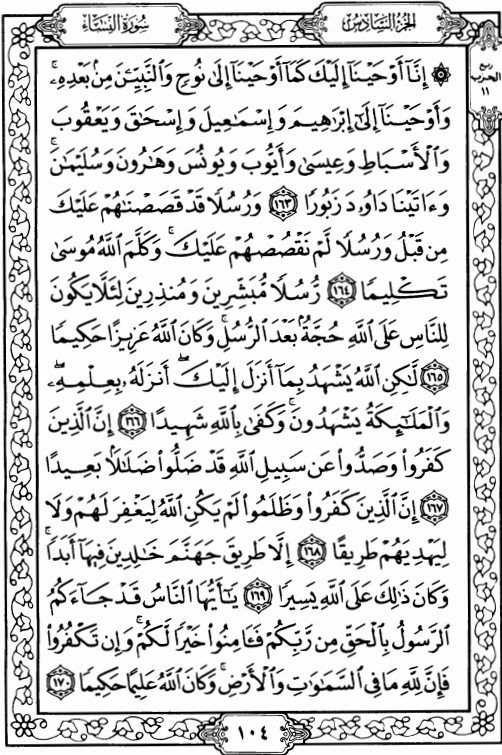 الجزء السادس
سورة النساء
ربع
الحزب
١١
۞ إِنَّا أَوْحَيْنَا إِلَيْكَ كَمَا أَوْحَيْنَا إِلَىٰ نُوحٍ وَالنَّبِيِّـۧنَ مِنۢ بَعْدِهِۦۚ
وَأَوْحَيْنَا إِلَىٰ إِبْرَٰهِيمَ وَإِسْمَٰعِيلَ وَإِسْحَٰقَ وَيَعْقُوبَ
وَالْأَسْبَاطِ وَعِيسَىٰ وَأَيُّوبَ وَيُونُسَ وَهَٰرُونَ وَسُلَيْمَٰنَۚ
وَءَاتَيْنَا دَاوُۥدَ زَبُورًا ١٦٣ وَرُسُلًا قَدْ قَصَصْنَٰهُمْ عَلَيْكَ
مِن قَبْلُ وَرُسُلًا لَّمْ نَقْصُصْهُمْ عَلَيْكَۚ وَكَلَّمَ اللَّهُ مُوسَىٰ
تَكْلِيمًا ١٦٤ رُّسُلًا مُّبَشِّرِينَ وَمُنذِرِينَ لِئَلَّا يَكُونَ
لِلنَّاسِ عَلَى اللَّهِ حُجَّةٌۢ بَعْدَ الرُّسُلِۚ وَكَانَ اللَّهُ عَزِيزًا حَكِيمًا
١٦٥ لَّٰكِنِ اللَّهُ يَشْهَدُ بِمَا أَنزَلَ إِلَيْكَۖ أَنزَلَهُۥ بِعِلْمِهِۦۖ
وَالْمَلَٰٓئِكَةُ يَشْهَدُونَۚ وَكَفَىٰ بِاللَّهِ شَهِيدًا ١٦٦ إِنَّ الَّذِينَ
كَفَرُوا۟ وَصَدُّوا۟ عَن سَبِيلِ اللَّهِ قَدْ ضَلُّوا۟ ضَلَٰلًۢا بَعِيدًا
١٦٧ إِنَّ الَّذِينَ كَفَرُوا۟ وَظَلَمُوا۟ لَمْ يَكُنِ اللَّهُ لِيَغْفِرَ لَهُمْ وَلَا
لِيَهْدِيَهُمْ طَرِيقًا ١٦٨ إِلَّا طَرِيقَ جَهَنَّمَ خَٰلِدِينَ فِيهَآ أَبَدًاۚ
وَكَانَ ذَٰلِكَ عَلَى اللَّهِ يَسِيرًا ١٦٩ يَٰٓأَيُّهَا النَّاسُ قَدْ جَآءَكُمُ
الرَّسُولُ بِالْحَقِّ مِن رَّبِّكُمْ فَـَٔامِنُوا۟ خَيْرًا لَّكُمْۚ وَإِن تَكْفُرُوا۟
فَإِنَّ لِلَّهِ مَا فِي السَّمَٰوَٰتِ وَالْأَرْضِۚ وَكَانَ اللَّهُ عَلِيمًا حَكِيمًا ١٧٠
١٠٤